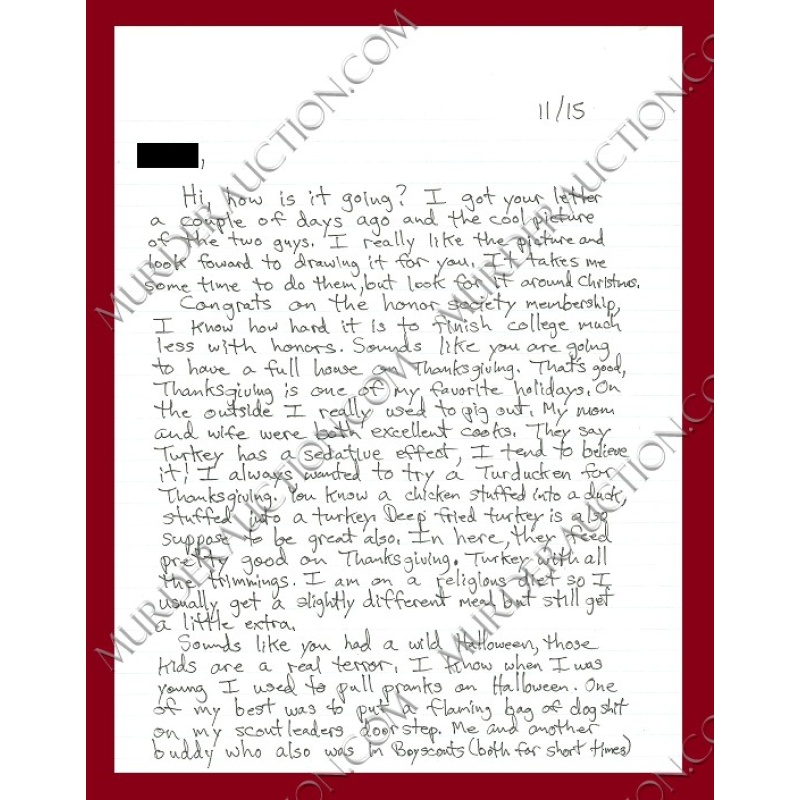 11/15
,
Hi, how is it going? I got your letter
a couple of days ago and the cool picture
of the two guys. I really like the picture and
look foward to drawing it for you. It takes me
some time to do them, but look for it around Christmas.
Congrats on the honor society membership,
I know how hard it is to finish college much
less with honors. Sounds like you are going
to have a full house on Thanksgiving. That's good,
Thanksgiving is one of my favorite holidays. On
the outside I really used to pig out. My mom
and wife were both excellent cooks. They say
Turkey has a sedative effect, I tend to believe
it! I always wanted to try a Turducken for
Thanksgiving. You know a chicken stuffed into a duck,
stuffed into a turkey. Deep fried turkey is also
suppose to be great also. In here, they feed
pretty good on Thanksgiving. Turkey with all
the trimmings. I am on a religious diet so I
usually get a slightly different meal but still get
a little extra.
Sounds like you had a wild Halloween, those
kids are a real terror. I know when I was
young I used to pull pranks on Halloween. One
of my best was to put a flaming bag of dog shit
on my scout leaders doorstep. Me and another
buddy who also was in Boyscouts (both for short times)
MURDERAUCTION.COM
MURDERAUCTION.COM
MURDERAUCTION.COM
MURDERAUCTION.COM